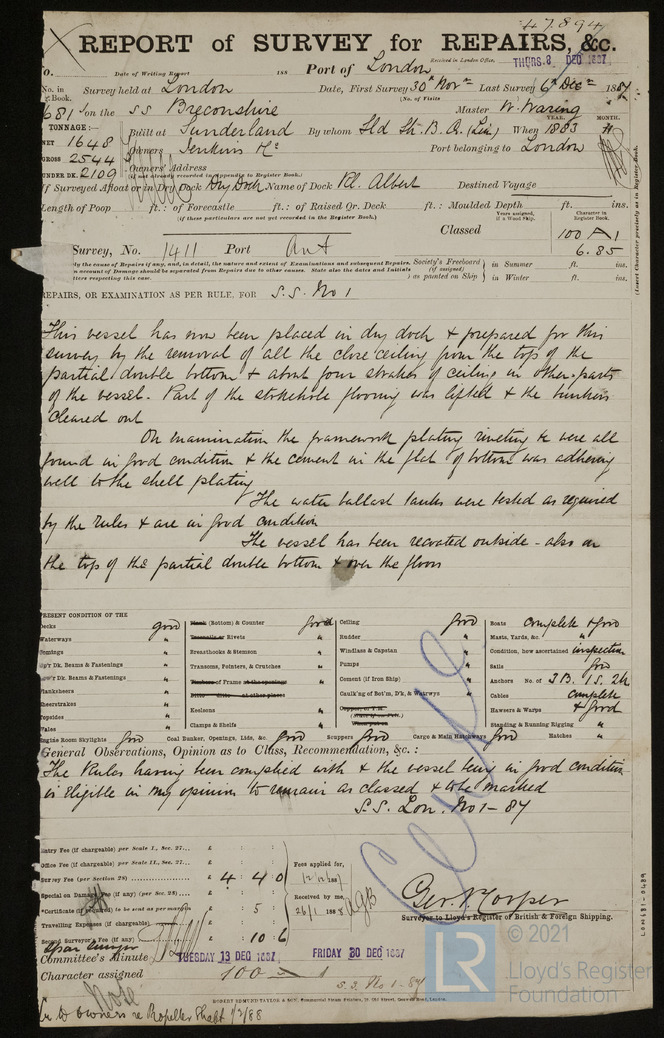 47,894
REPORT of SURVEY for REPAIRS, &c.
Received in London Office, THURS. 8 DEC 1887
No. Date of Writing Report 188 Port of London
No. in Reg. Book. Survey held at London Date, First Survey 30th Novr Last Survey 6th Decr 1887
(No. of Visits
681 on the S S Breconshire Master W. Waring
TONNAGE:— YEAR. MONTH.
NET 1648 Built at Sunderland By whom Sld Sh. B. Co. (Lim) When 1883
GROSS 2544 Owners Jenkins & Co Port belonging to London
UNDER DK. 2109 Owners' Address
(if not already recorded in Appendix to Register Book.)
If Surveyed Afloat or in Dry Dock Dry Dock Name of Dock Rl. Albert Destined Voyage
Length of Poop ft.: of Forecastle ft.: of Raised Qr. Deck ft.: Moulded Depth ft. ins.
(if these particulars are not yet recorded in the Register Book.)
Years assigned, if a Wood Ship. Character in Register Book.
Classed 100 A 1
6.85
(Insert Character precisely as in Register Book.)
Survey, No. 1411 Port Ant
Society's Freeboard (if assigned) as painted on Ship in Summer ft. ins.
in Winter ft. ins.
REPAIRS, OR EXAMINATION AS PER RULE, FOR S.S. No 1
This vessel has now been placed in dry dock & prepared for this
survey by the removal of all the close ceiling from the top of the
partial double bottom & about four strakes of ceiling in other parts
of the vessel. Part of the stokehole flooring was lifted & the bunkers
cleared out
On examination the framework plating riveting &c were all
found in good condition & the cement in the flat of bottom was adhering
well to the shell plating
The water ballast tanks were tested as required
by the rules & are in good condition
The vessel has been recoated outside - also on
the top of the partial double bottom & over the floors
PRESENT CONDITION OF THE
Decks good
Waterways "
Comings "
Up'r Dk. Beams & Fastenings "
Low'r Dk. Beams & Fastenings "
Planksheers "
Sheerstrakes "
Topsides "
Wales "
Plank (Bottom) & Counter good
Treenails or Rivets "
Breasthooks & Stemson "
Transoms, Pointers, & Crutches "
Timbers of Frame at the openings "
Ditto ditto at other places
Keelsons "
Clamps & Shelfs "
Ceiling good
Rudder "
Windlass & Capstan "
Pumps "
Cement (if Iron Ship) "
Caulk'g of Bot'm, D'k, & Waterwys "
Boats complete & good
Masts, Yards, &c. "
Condition, how ascertained inspection
Sails good
Anchors No. of 3 B. 1 S. 2 K
Cables complete
Hawsers & Warps & good
Standing & Running Rigging "
Engine Room Skylights good Coal Bunker, Openings, Lids, &c. good Scuppers good Cargo & Main Hatchways good Hatches "
General Observations, Opinion as to Class, Recommendation, &c.:
The Rules having been complied with & the vessel being in good condition
is eligible in my opinion to remain as classed & to be marked
S.S. Lon. No 1 - 87
Entry Fee (if chargeable) per Scale I., Sec. 27... £ : :
Office Fee (if chargeable) per Scale II., Sec. 27... £ : :
Survey Fee (per Section 28) £ 4 : 4 : 0
Special or Damage Fee (if any) (per Sec. 28) £ : :
Certificate (if required) to be sent as per margin £ : 5 :
Travelling Expenses (if chargeable) £ : :
Second Surveyor's Fee (if any) £ : 10 : 6
Fees applied for,
12/12/1887
Received by me,
26/1 1888
Geo. N. Cooper
Surveyor to Lloyd's Register of British & Foreign Shipping.
Committee's Minute TUESDAY 13 DEC 1887, FRIDAY 30 DEC 1887
Character assigned 100 A 1
S.S. No 1 - 87
Note
ROBERT EDMUND TAYLOR & SON
to owners re Propeller Shaft 1/2/88
© 2021
LR
Lloyd's Register
Foundation